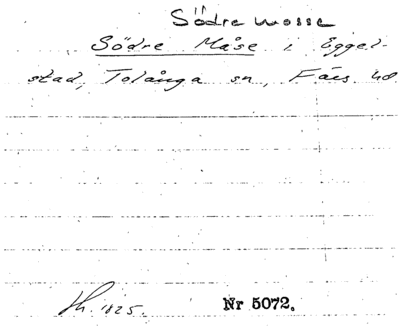 Södre mosse
Södre Måse i Eggel-
stad, Tolånga sn, Färs hd
Sk. 1825. Nr 5072.